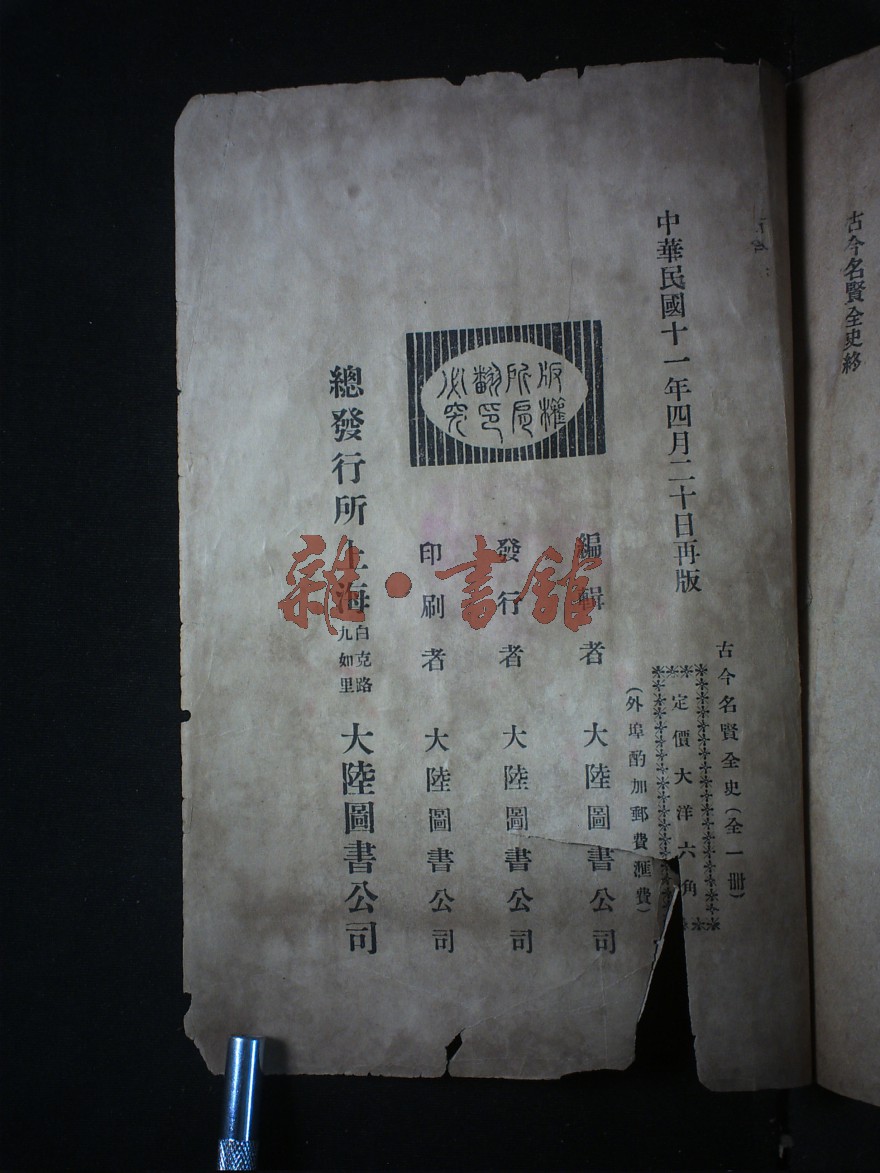 古今名賢全史終
中華民國十一年四月二十日再版
古今名賢全史(全一冊)
定價大洋六角
(外埠酌加郵費滙費)
版權
所有
翻印
必究
編輯者 大陸圖書公司
發行者 大陸圖書公司
印刷者 大陸圖書公司
總發行所 上海 白克路
九如里 大陸圖書公司
雜·書館